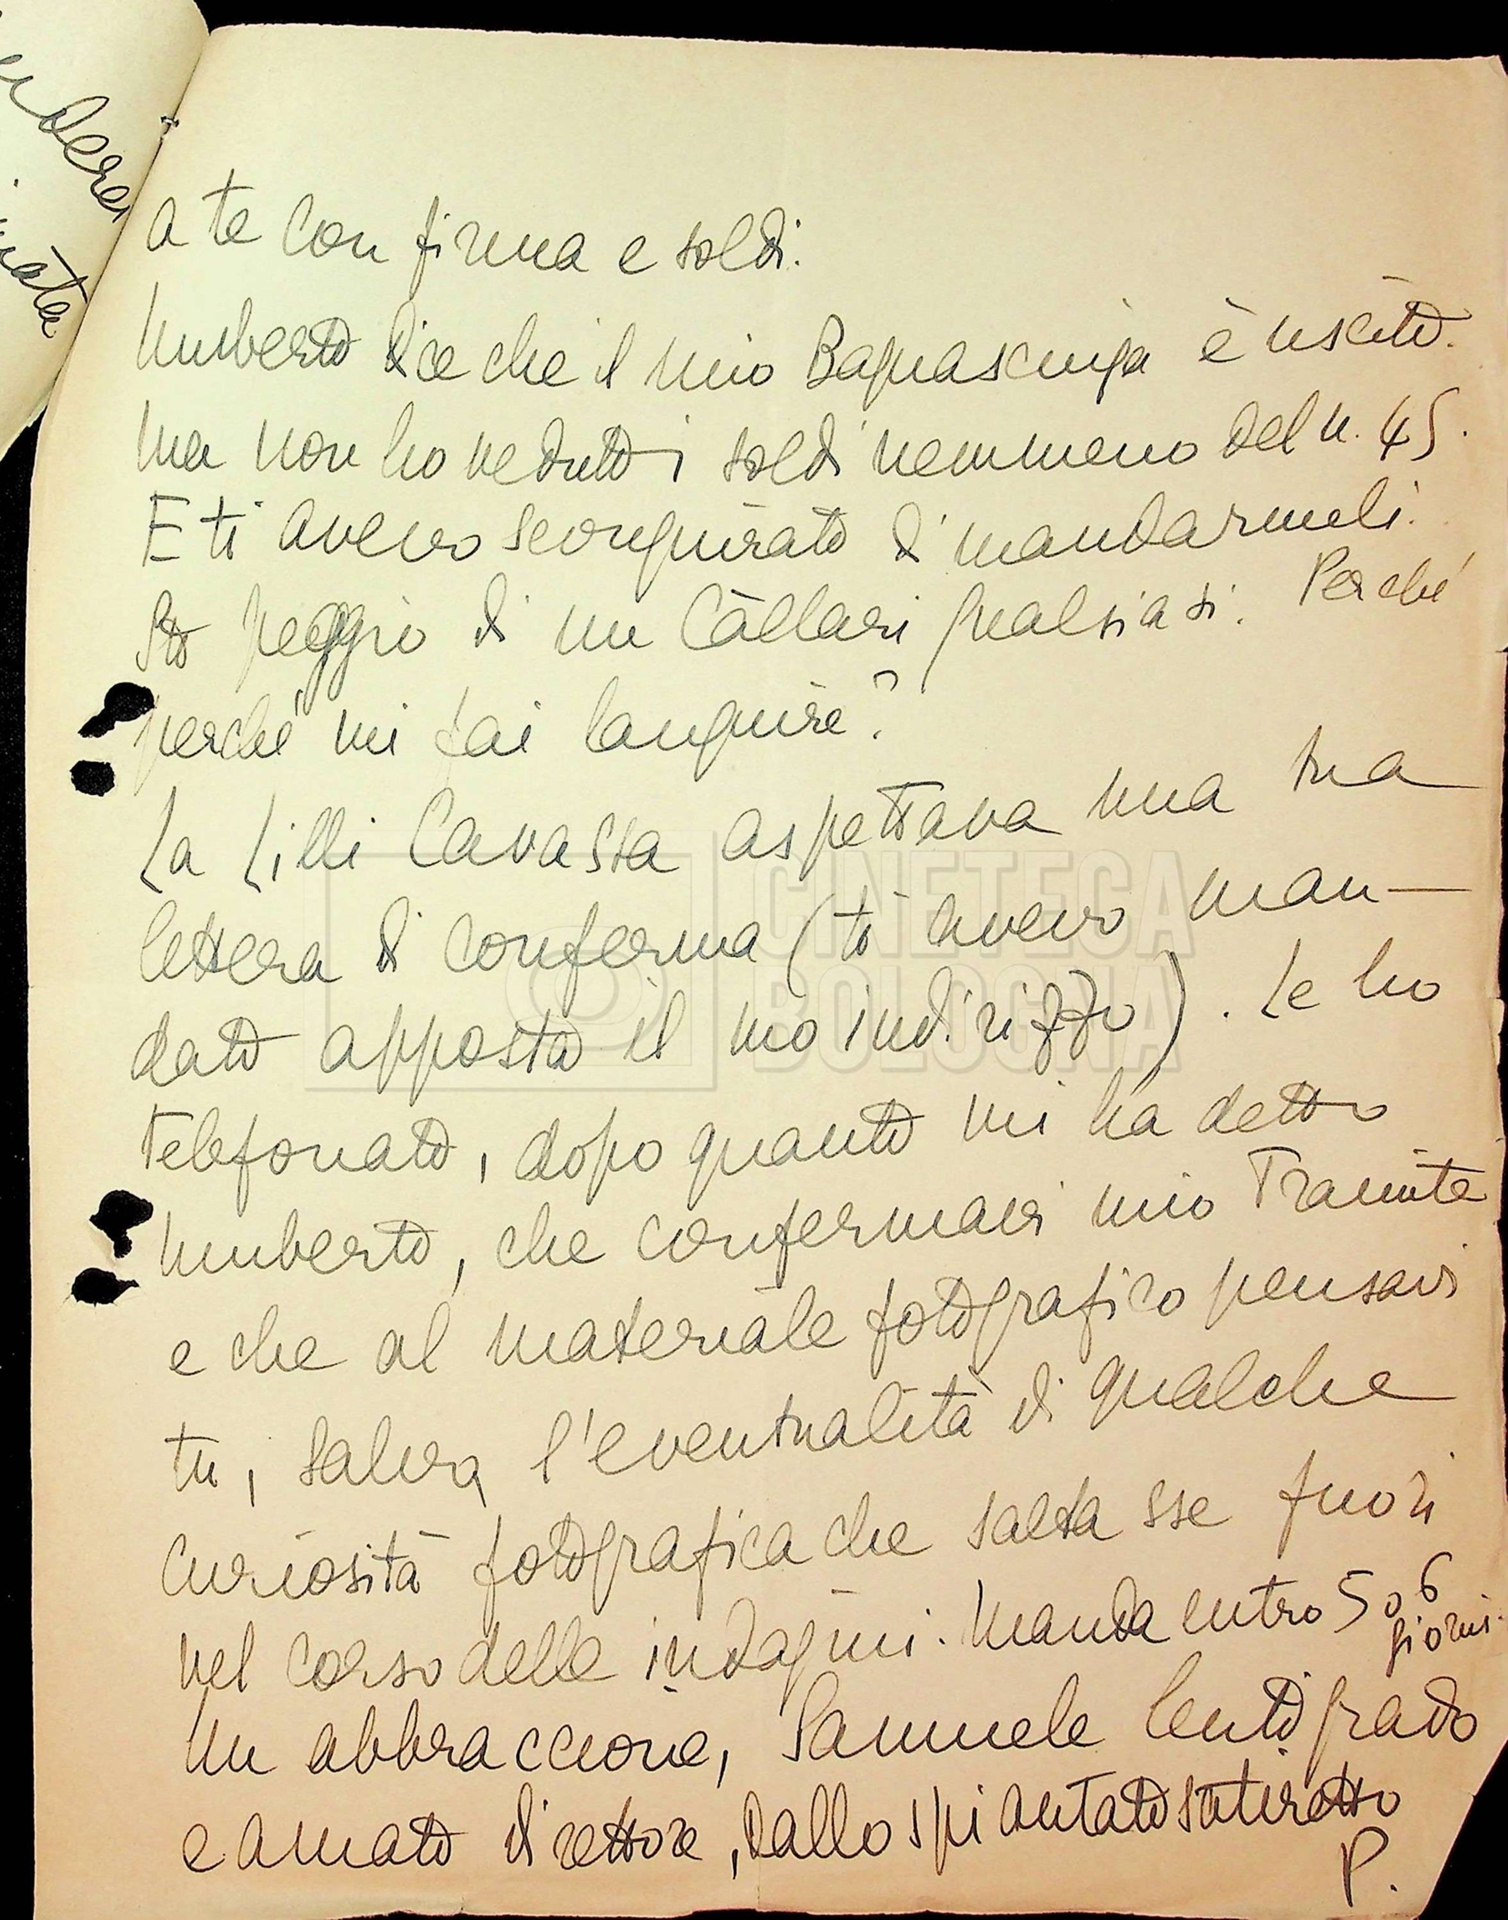 a te con firma e soldi.
Umberto dice che il mio Bagnasciuga è uscito.
Ma non ho veduto i soldi nemmeno del n. 45.
E ti avevo scongiurato di mandarmeli.
Sto peggio di un Càllari qualsiasi. Perché
perché mi fai languire?
La Lilli Cavassa aspettava una tua
lettera di conferma (ti avevo man-
dato apposta il suo indirizzo). Le ho
telefonato, dopo quanto mi ha detto
Umberto, che confermavi mio tramite
e che al materiale fotografico pensavi
tu, salva l'eventualità di qualche
curiosità fotografica che saltasse fuori
nel corso delle indagini. Manda entro 5 o 6
giorni.
Un abbraccione, Samuele lentigrado
e amato direttore, dallo spiantato satiretto
P.
CINETECA
BOLOGNA